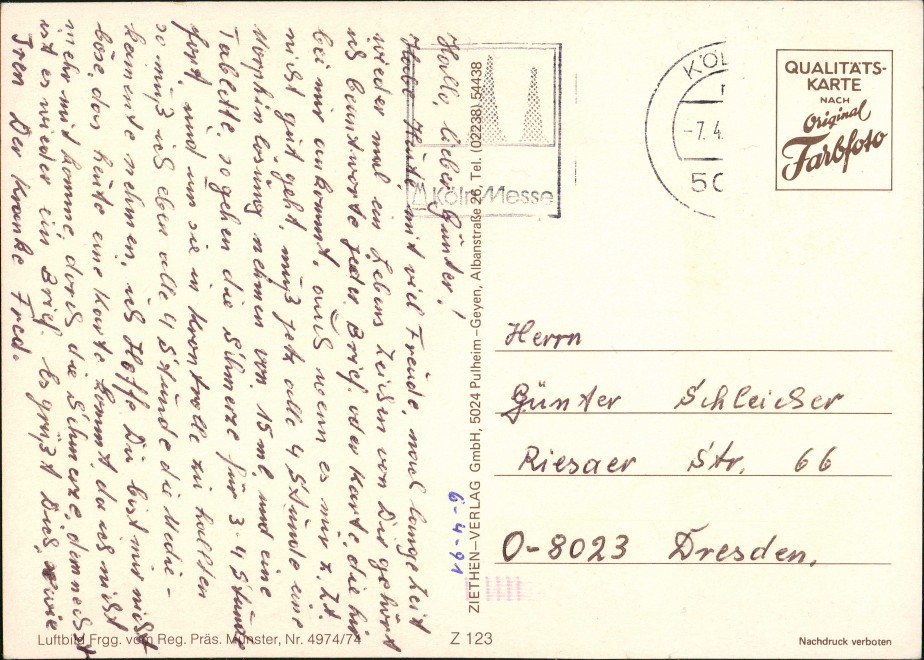 Hallo, lieber Günter!
Habe Heute mit viel Freude, nach lange Zeit
wieder mal ein Lebens Zeichen von Dir gehört
ich beantworte jeder Brief oder Karte, die hir
bei mir ankommt, auch wenn es mir z.Zt.
nicht gut geht, muß jetz alle 4 Stunde eine
Morphinlösung nehmen von 15 ml und eine
Tablette, so gehen die Schmerze für 3-4 Stunde
fort, und um sie in Kontrolle zu halten
so muß ich eben alle 4 Stunde die Medie-
kamente nehmen, ich Hoffe Du bist mir nicht
böse, das heute eine Karte kommt, da ich nicht
mehr mit komme, durch die Schmerze, demnächst
ist es wieder ein Brief. Es grüßt Dich, wie
Iren Der kranke Fred.
KölnMesse
KÖL
-7.4.
50
QUALITÄTS-
KARTE
NACH
Original
Farbfoto
Herrn
Günter Schleicher
Riesaer Str. 66
O-8023 Dresden.
6-4-91
ZIETHEN-VERLAG GmbH, 5024 Pulheim-Geyen, Albanstraße 26, Tel. (02238) 54438
Luftbild Frgg. vom Reg. Präs. Münster, Nr. 4974/74
Z 123
Nachdruck verboten